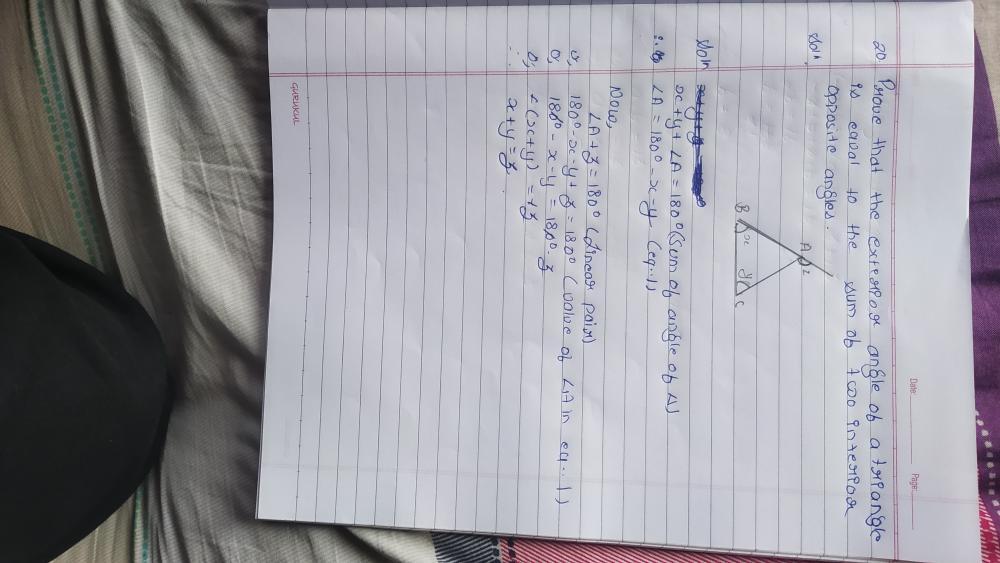 Date: Page:
20. Prove that the exterior angle of a triangle
is equal to the sum of two interior
opposite angles.
Soln,
A z
B x y C
Soln
x+y+∠A = 180° (Sum of angle of Δ)
∠A = 180° - x - y (eq..1)
Now,
∠A + z = 180° (Linear pair)
or, 180° - x - y + z = 180° (value of ∠A in eq...1)
or, 180° - x - y = 180° - z
or, -(x+y) = +z
∴ x+y = z.
GURUKUL